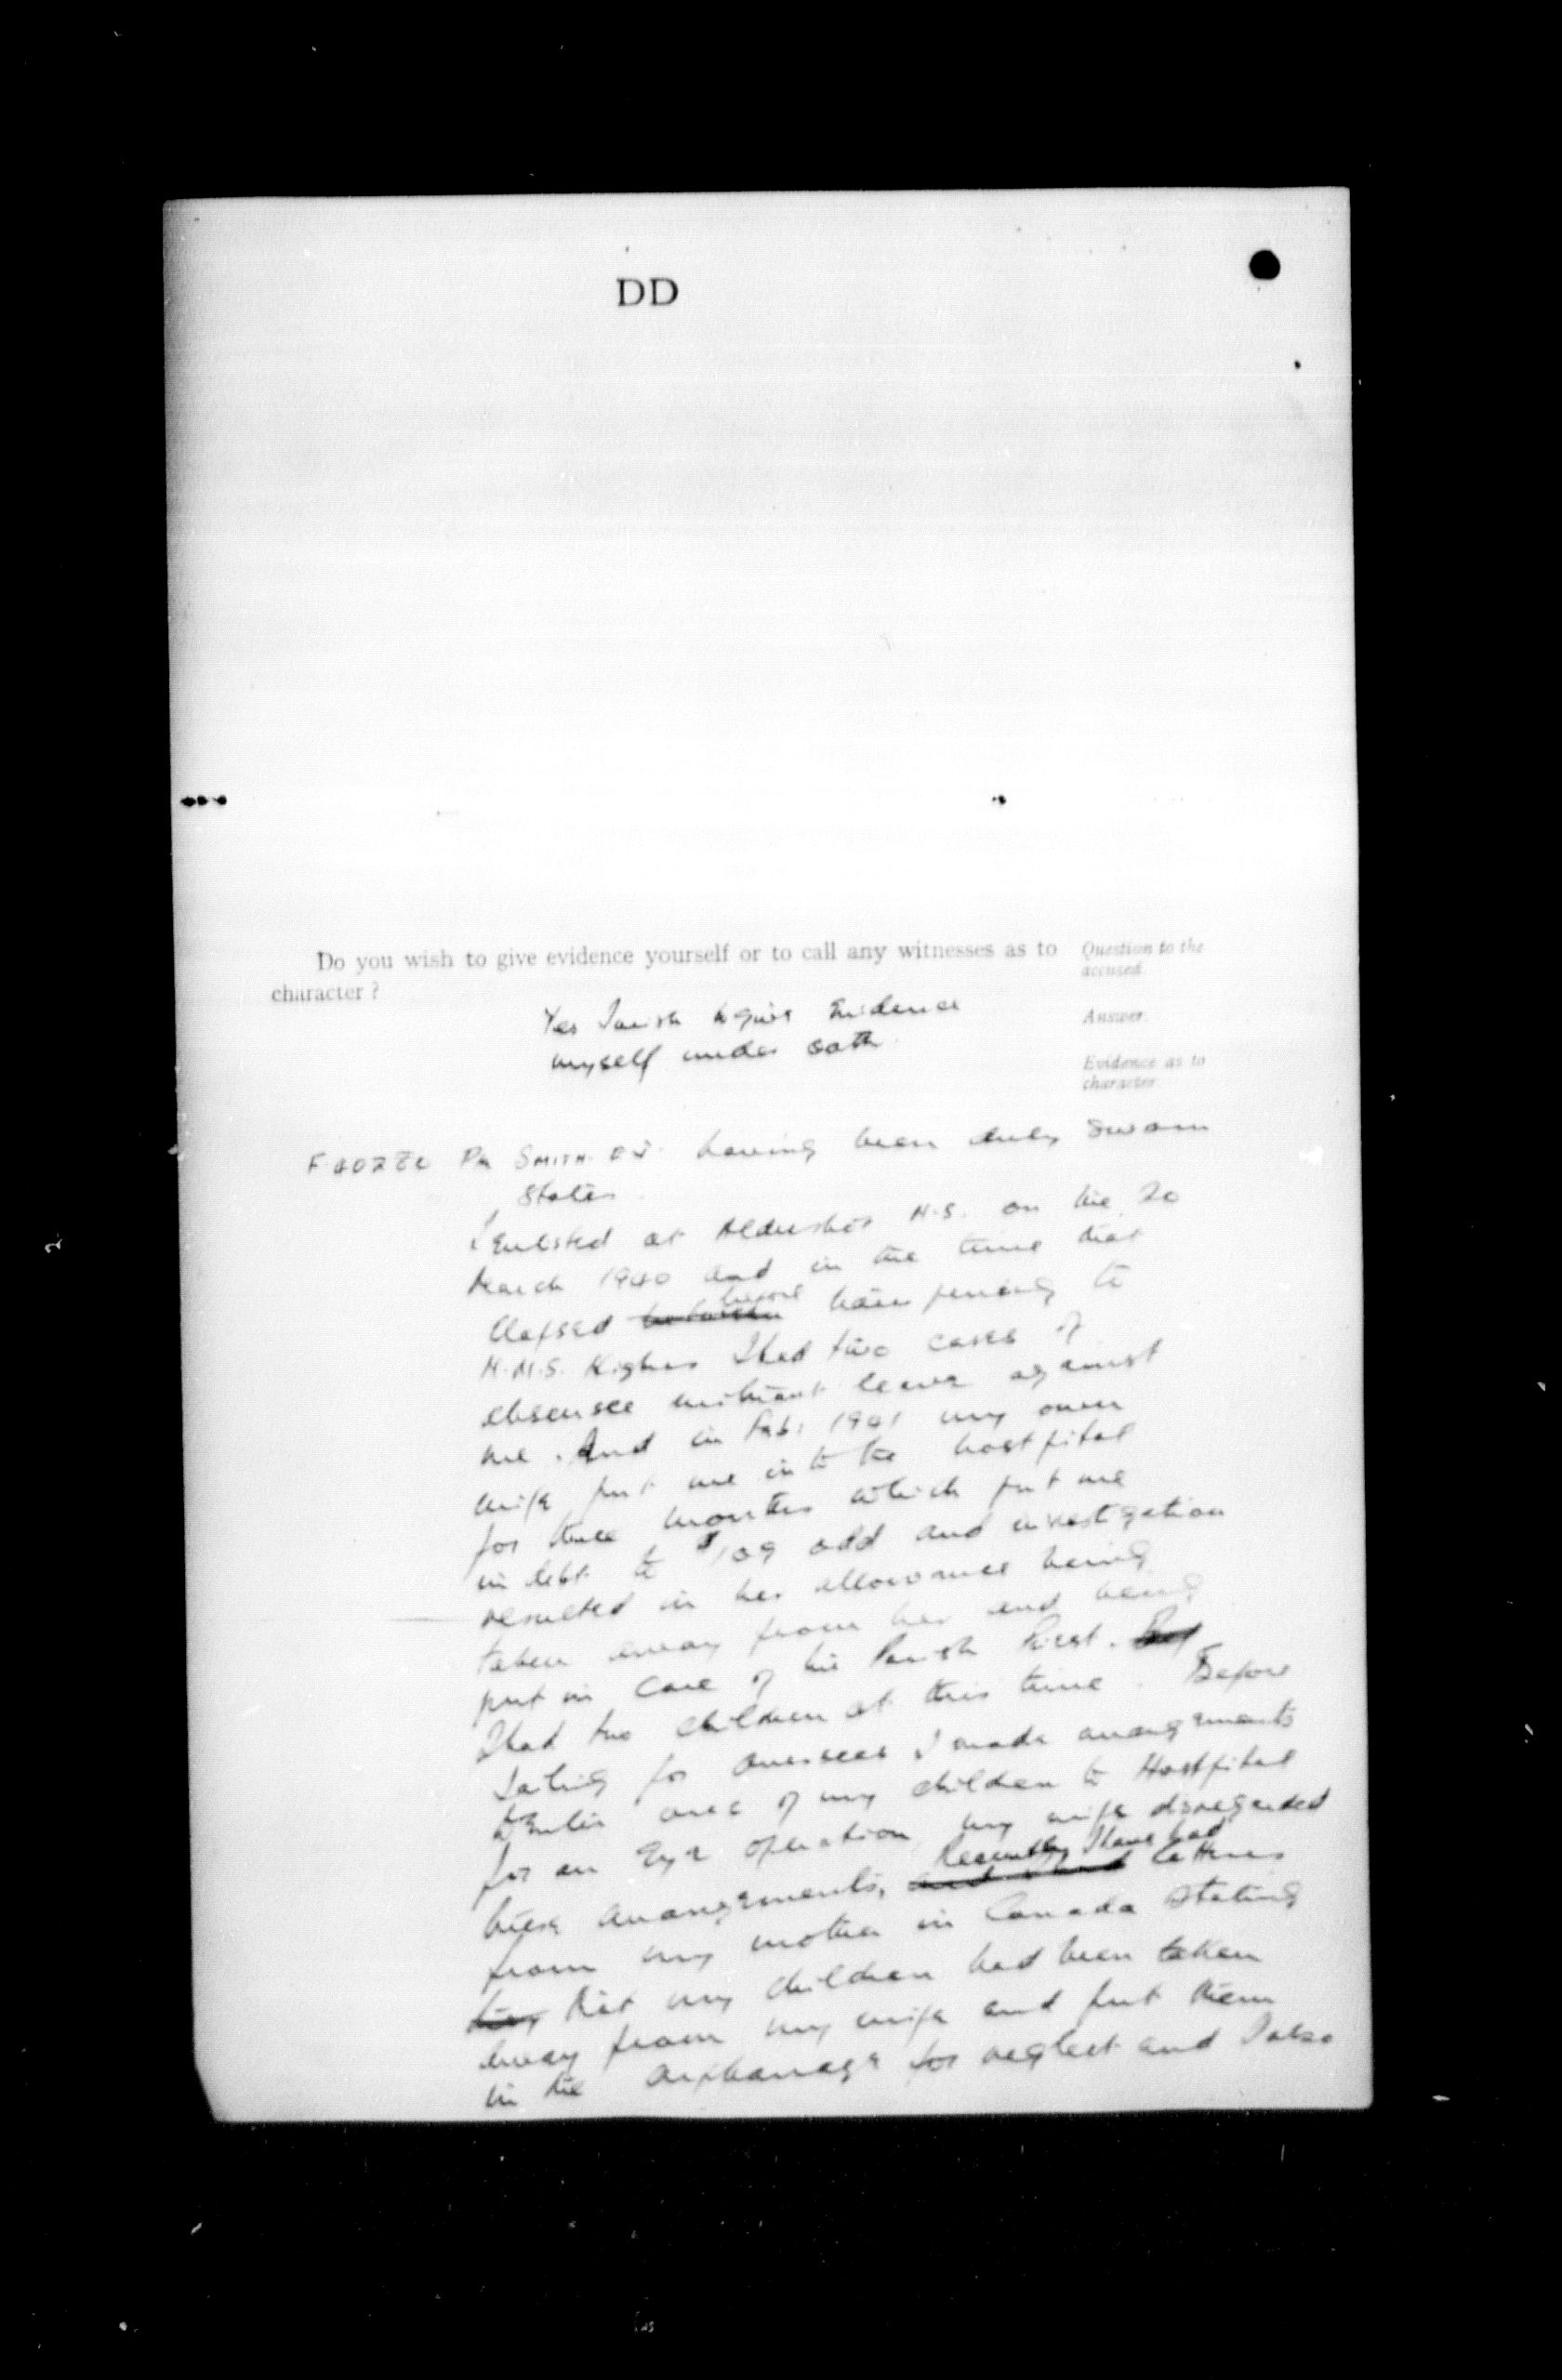 DD
Do you wish to give evidence yourself or to call any witnesses as to
character ?
Question to the
accused.
Yes I wish to give Evidence
myself under oath.
Answer.
Evidence as to
character.
Pte SMITH. E.J. having been duly sworn
states
I Enlisted at Aldershot N.S. on the 20
March 1940 and in the time that
Elapsed before transfering to
N.N.S. Highrs I had two cases of
absensce without leave against
me. And in Feb. 1941 my own
wife put me into the hostpital
for three months which put me
in debt to $109 odd and investigation
resulted in her allowance being
taken away from her and being
put in care of the Parish Priest.
I had two children at this time. Before
Sailing for overseas I made arrangements
to Enter one of my children to Hostpital
for an Eye operation my wife disregarded
these arrangements, Recently I have had letters
from my mother in Canada stating
that my children had been taken
away from my wife and put them
in the orphanage for neglect and I also